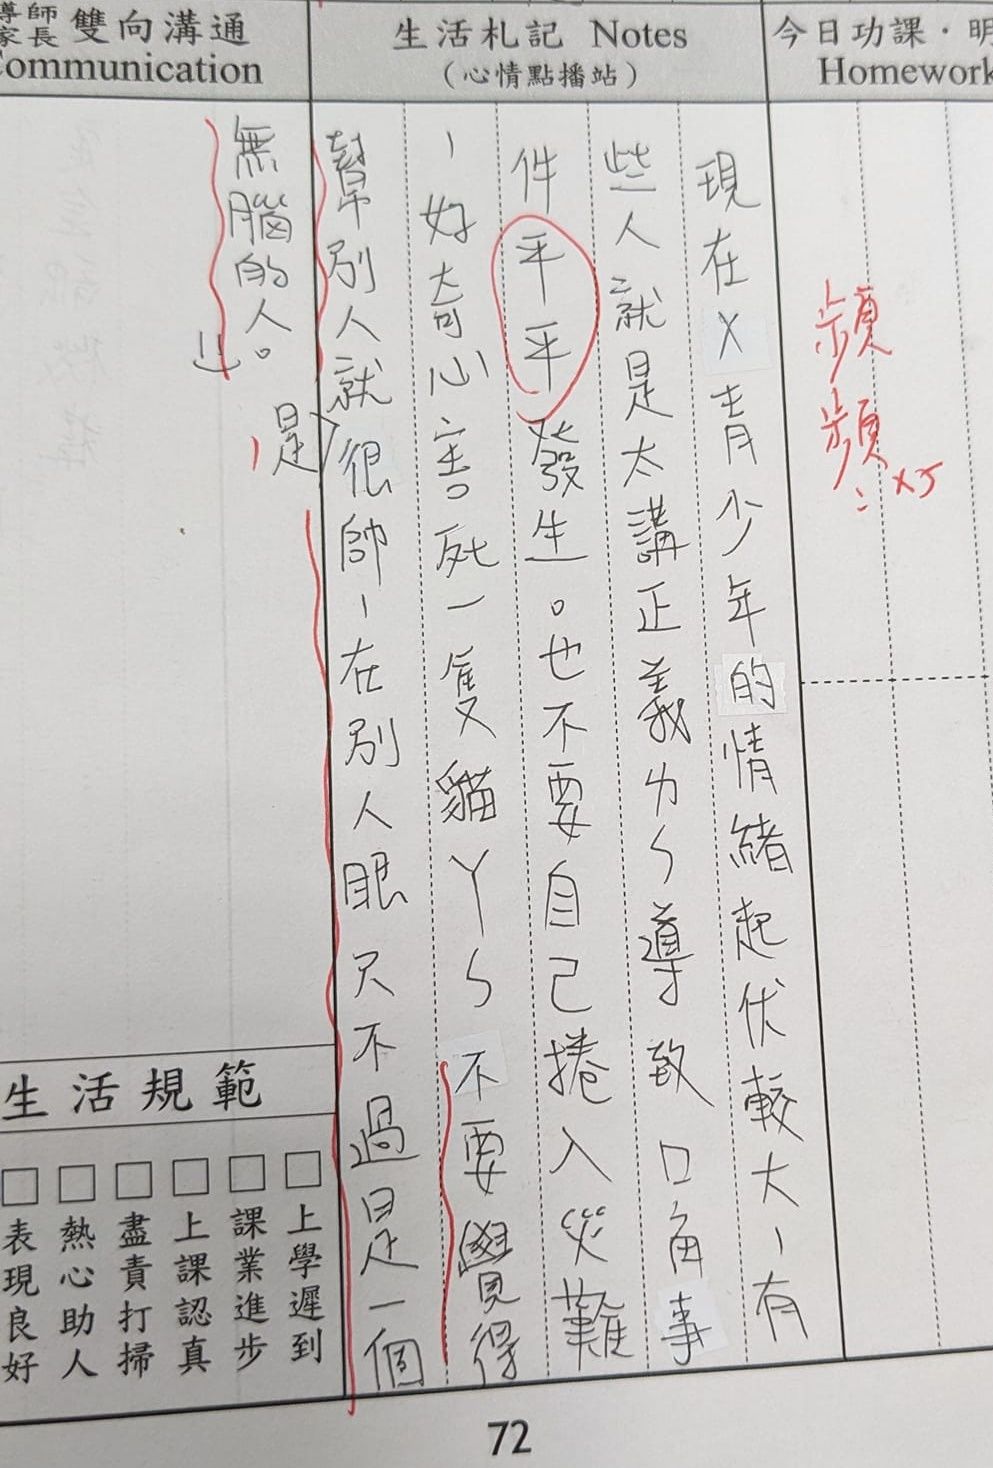 今日功課．明
Homework
頻頻：xx
生活札記 Notes
（心情點播站）
現在X青少年的情緒起伏較大，有
些人就是太講正義力ㄣ導致口角事
件平平發生。也不要自己捲入災難
，好奇心害死一隻貓ㄚㄣ不要覺得
幫別人就很帥，在別人眼只不過是一個
是
無腦的人。
導師家長 雙向溝通
Communication
生活規範
□上學遲到
□課業進步
□上課認真
□盡責打掃
□熱心助人
□表現良好
72